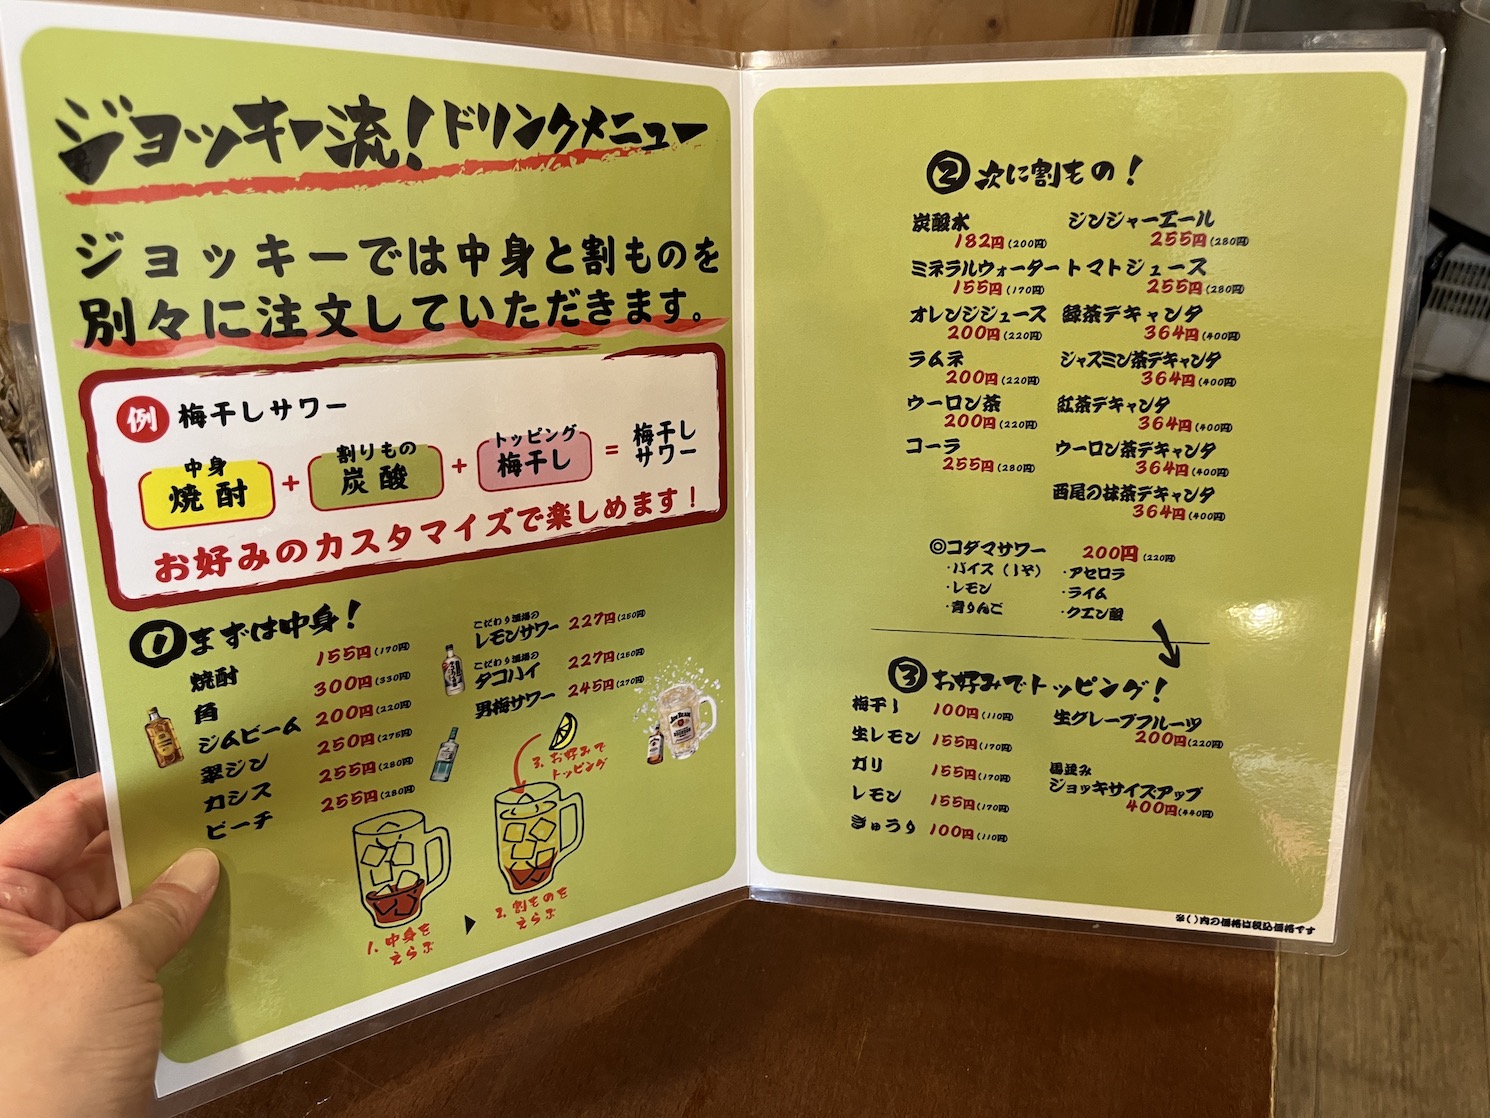 ジョッキー流!ドリンクメニュー
ジョッキーでは中身と割ものを
別々に注文していただきます。
例 梅干しサワー
中身
焼酎
+
割りもの
炭酸
+
トッピング
梅干し
=
梅干し
サワー
お好みのカスタマイズで楽しめます!
①まずは中身!
焼酎 155円(170円)
角 300円(330円)
ジムビーム 200円(220円)
翠ジン 250円(275円)
カシス 255円(280円)
ピーチ 255円(280円)
こだわり酒場の
レモンサワー 227円(250円)
こだわり酒場の
タコハイ 227円(250円)
男梅サワー 245円(270円)
3.お好みで
トッピング
1.中身を
えらぶ
2.割ものを
えらぶ
②次に割もの!
炭酸水
182円(200円)
ミネラルウォーター
155円(170円)
オレンジジュース
200円(220円)
ラムネ
200円(220円)
ウーロン茶
200円(220円)
コーラ
255円(280円)
ジンジャーエール
255円(280円)
トマトジュース
255円(280円)
緑茶デキャンタ
364円(400円)
ジャスミン茶デキャンタ
364円(400円)
紅茶デキャンタ
364円(400円)
ウーロン茶デキャンタ
364円(400円)
西尾の抹茶デキャンタ
364円(400円)
◎コダマサワー 200円(220円)
・バイス(しそ)
・レモン
・青りんご
・アセロラ
・ライム
・クエン酸
③お好みでトッピング!
梅干し 100円(110円)
生レモン 155円(170円)
ガリ 155円(170円)
レモン 155円(170円)
きゅうり 100円(110円)
生グレープフルーツ
200円(220円)
馬並み
ジョッキサイズアップ
400円(440円)
※()内の価格は税込価格です